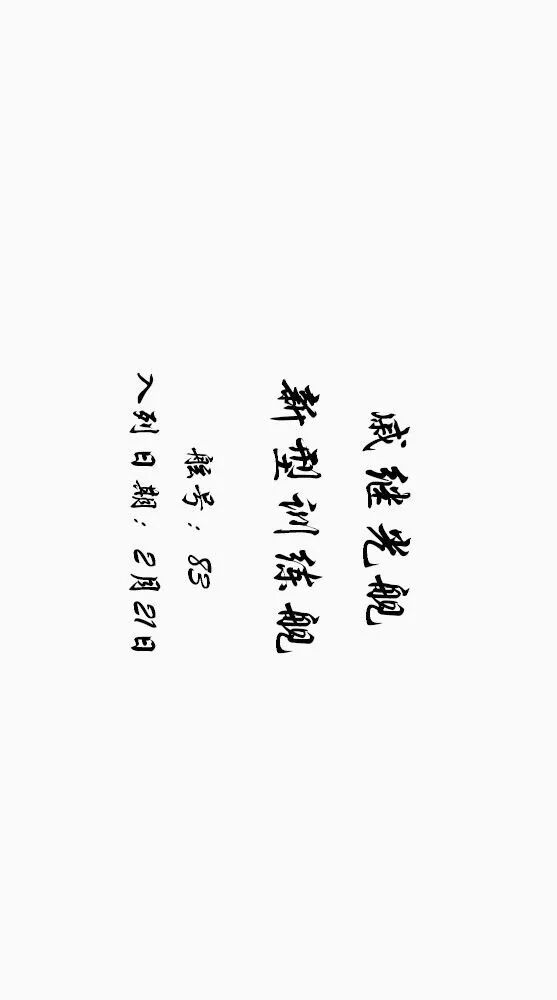 戚继光舰
新型训练舰
舷号：83
入列日期：2月21日